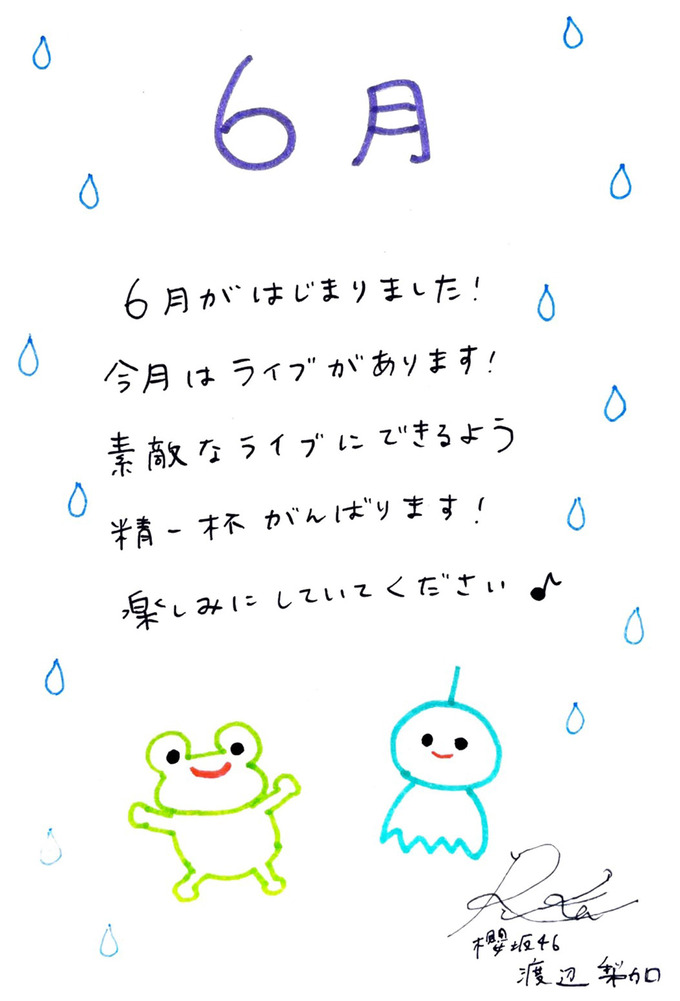 6月
6月がはじまりました!
今月はライブがあります!
素敵なライブにできるよう
精一杯がんばります!
楽しみにしていてください♪
櫻坂46
渡辺 梨加